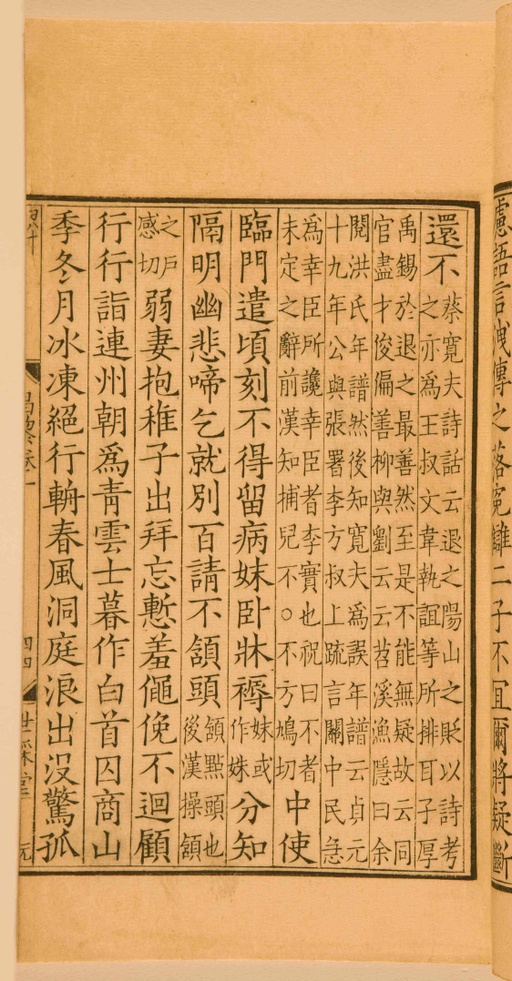 慮語言洩傳之落冤讎二子不宜爾將疑斷
還不
蔡寬夫詩話云退之陽山之貶以詩考
之亦爲王叔文韋執誼等所排耳子厚
禹錫於退之最善然至是不能無疑故云同
官盡才俊偏善柳與劉云云苕溪漁隱曰余
閱洪氏年譜然後知寬夫爲誤年譜云貞元
十九年公與張署李方叔上疏言關中民急
爲幸臣所讒幸臣者李實也祝曰不者
未定之辭前漢知捕兒不○不方鳩切
中使
臨門遣頃刻不得留病妹卧牀褥
妹或
作姝
分知
隔明幽悲啼乞就別百請不頷頭
頷點頭也
後漢操頷
之戶
感切
弱妻抱稚子出拜忘慙羞僶俛不迴顧
行行詣連州朝爲青雲士暮作白首囚商山
季冬月冰凍絕行輈春風洞庭浪出没驚孤
世綵堂